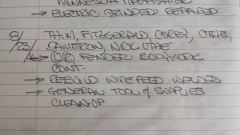 MINNESOTA
→ ELECTRIC GRINDER REPAIRED
8/ TIM, FITZGERALD, COREY, CHRIS,
/23 CAMERON, NICK
→ FENDER BODYWORK
CONT.
→ REBUILD WIRE FEED WELDER
→ GENERAL TOOL & SUPPLIES
CLEANUP